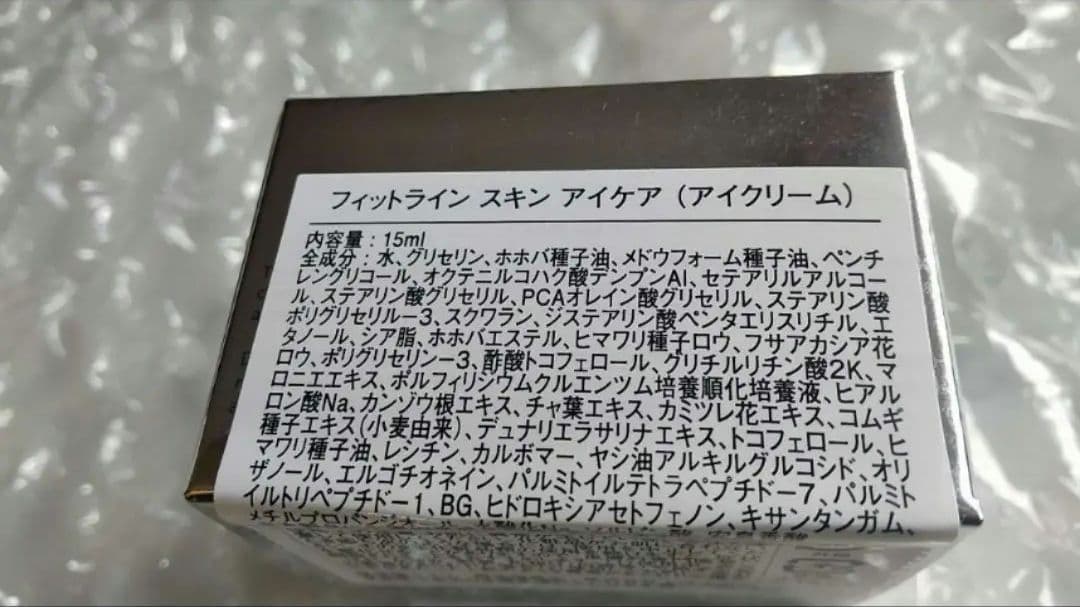 フィットライン スキン アイケア（アイクリーム）
内容量：15ml
全成分：水、グリセリン、ホホバ種子油、メドウフォーム種子油、ペンチ
レングリコール、オクテニルコハク酸デンプンAl、セテアリルアルコー
ル、ステアリン酸グリセリル、PCAオレイン酸グリセリル、ステアリン酸
ポリグリセリルー3、スクワラン、ジステアリン酸ペンタエリスリチル、エ
タノール、シア脂、ホホバエステル、ヒマワリ種子ロウ、フサアカシア花
ロウ、ポリグリセリンー3、酢酸トコフェロール、グリチルリチン酸2K、マ
ロニエエキス、ポルフィリジウムクルエンツム培養順化培養液、ヒアル
ロン酸Na、カンゾウ根エキス、チャ葉エキス、カミツレ花エキス、コムギ
種子エキス(小麦由来)、デュナリエラサリナエキス、トコフェロール、ヒ
マワリ種子油、レシチン、カルボマー、ヤシ油アルキルグルコシド、オリ
ザノール、エルゴチオネイン、パルミトイルテトラペプチドー7、パルミト
イルトリペプチドー1、BG、ヒドロキシアセトフェノン、キサンタンガム、
メチルプロパンジオール、